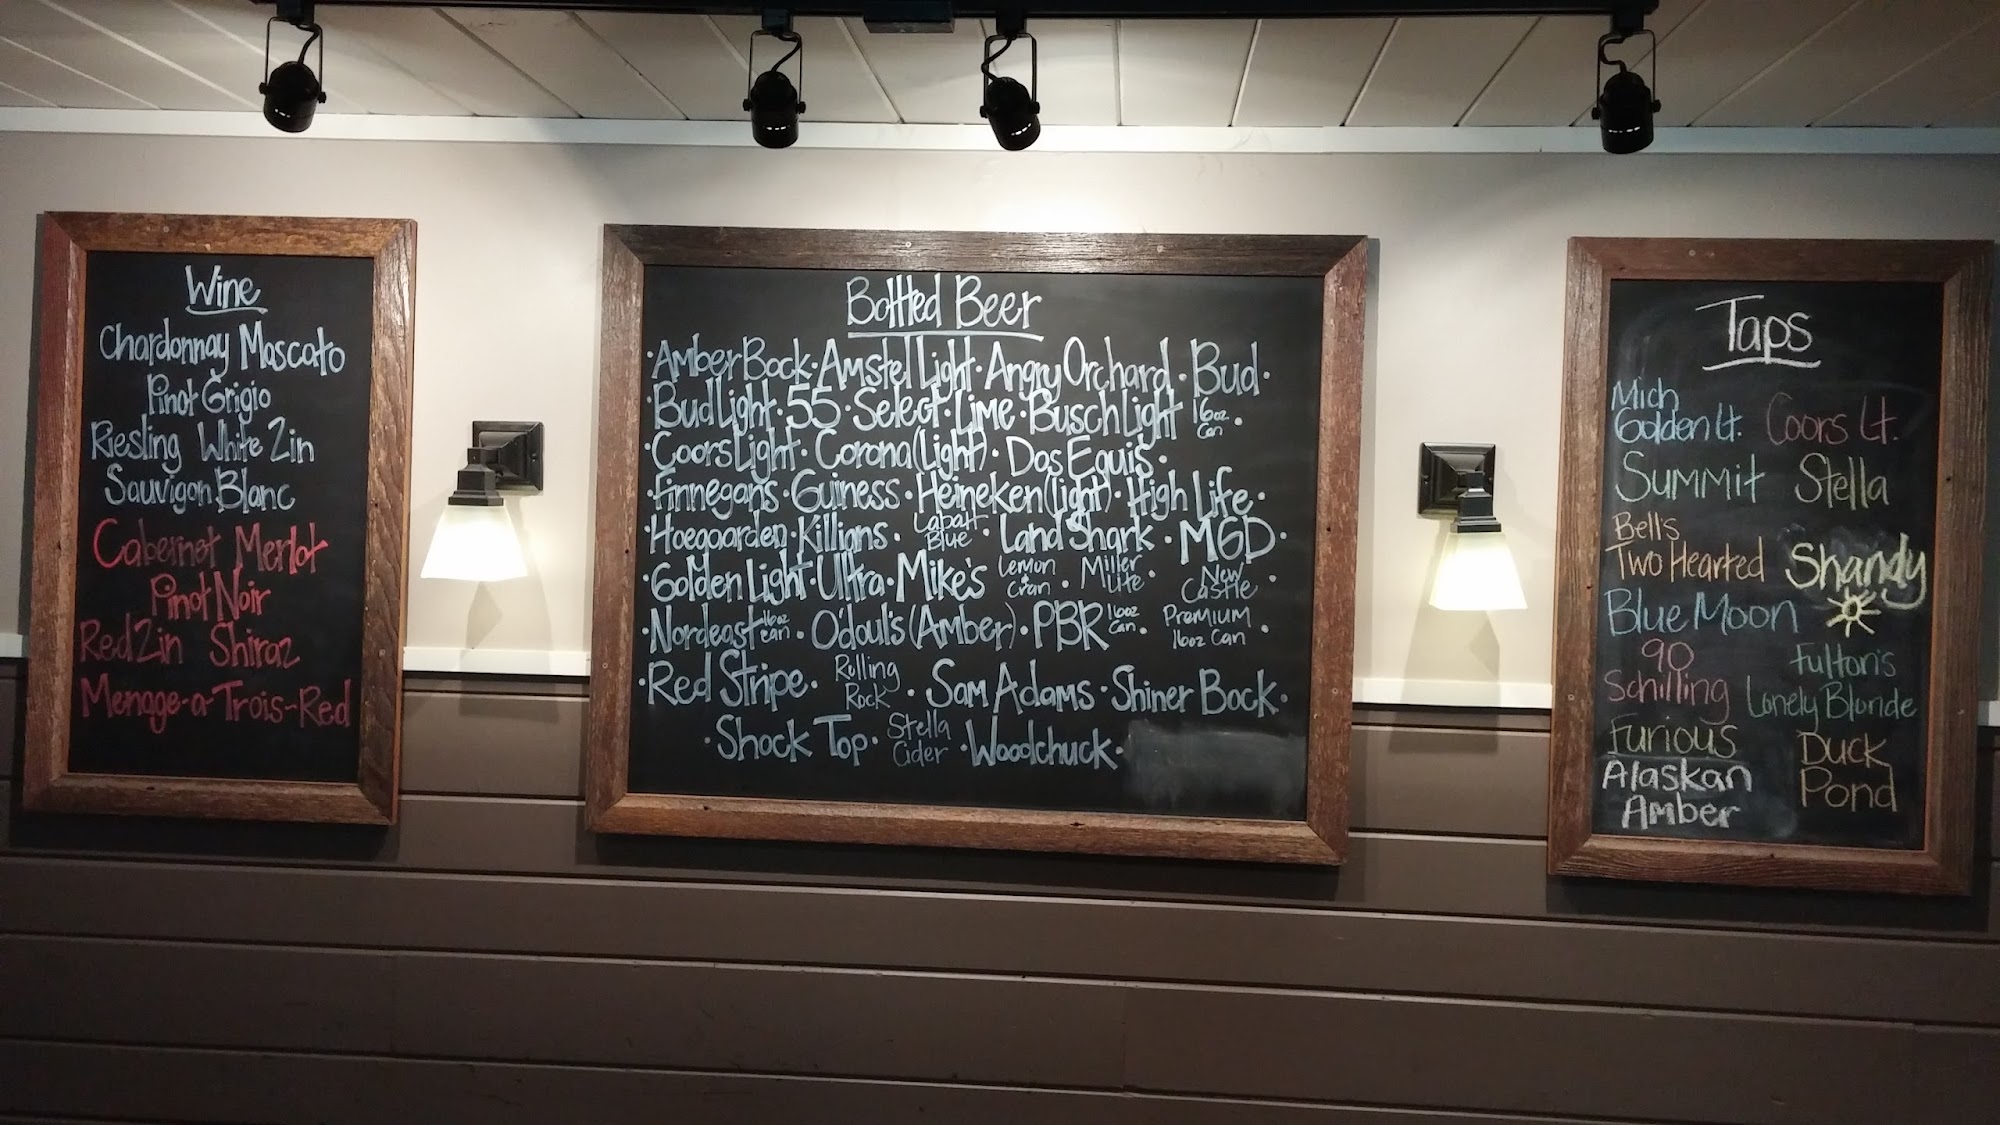 Wine
Chardonnay Moscato
Pinot Grigio
Riesling White Zin
Sauvigon Blanc
Cabernet Merlot
Pinot Noir
Red Zin Shiraz
Menage-a-Trois-Red
Bottled Beer
·Amber Bock·Amstel Light·Angry Orchard·Bud·
·Bud Light·55·Select·Lime·Busch Light 16oz Can·
·Coors Light·Corona(Light)·Dos Equis·
·Finnegans·Guiness·Heineken(light)·High Life·
·Hoegaarden·Killians·Labatt Blue·Land Shark·MGD·
·Golden Light·Ultra·Mike's Lemon Cran·Miller Lite·New Castle·
·Nordeast 16oz can·O'doul's(Amber)·PBR 16oz Can·Premium 16oz Can·
·Red Stripe·Rolling Rock·Sam Adams·Shiner Bock·
·Shock Top·Stella Cider·Woodchuck·
Taps
Mich
Golden Lt. Coors Lt.
Summit Stella
Bell's
Two Hearted Shandy
Blue Moon
90
Schilling
Fulton's
Lonely Blonde
Furious
Duck
Pond
Alaskan
Amber